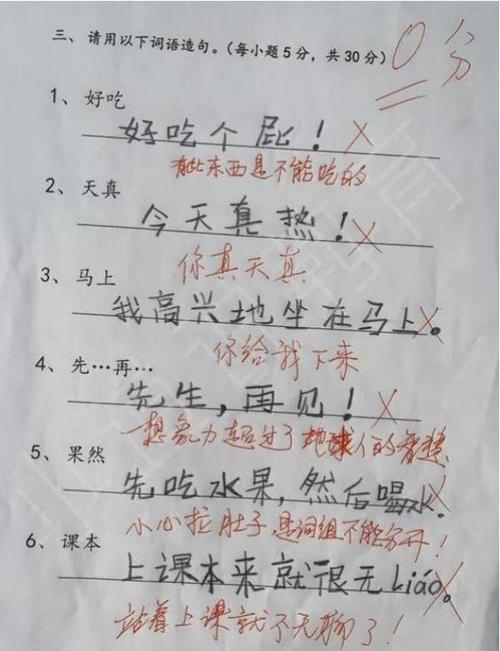 三、请用以下词语造句。（每小题5分，共30分）
0分
1、好吃
好吃个屁！
有些东西是不能吃的
2、天真
今天真热！
你真天真
3、马上
我高兴地坐在马上。
你给我下来
4、先…再…
先生，再见！
想象力超过了地球人的智慧
5、果然
先吃水果，然后喝水。
小心拉肚子 是词组不能分开！
6、课本
上课本来就很无Liáo。
站着上课就不无聊了！